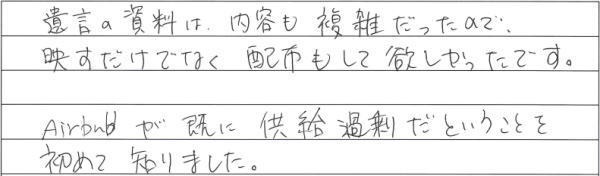 遺言の資料は、内容も複雑だったので、
映すだけでなく配布もして欲しかったです。
Airbnbが既に供給過剰だということを
初めて知りました。